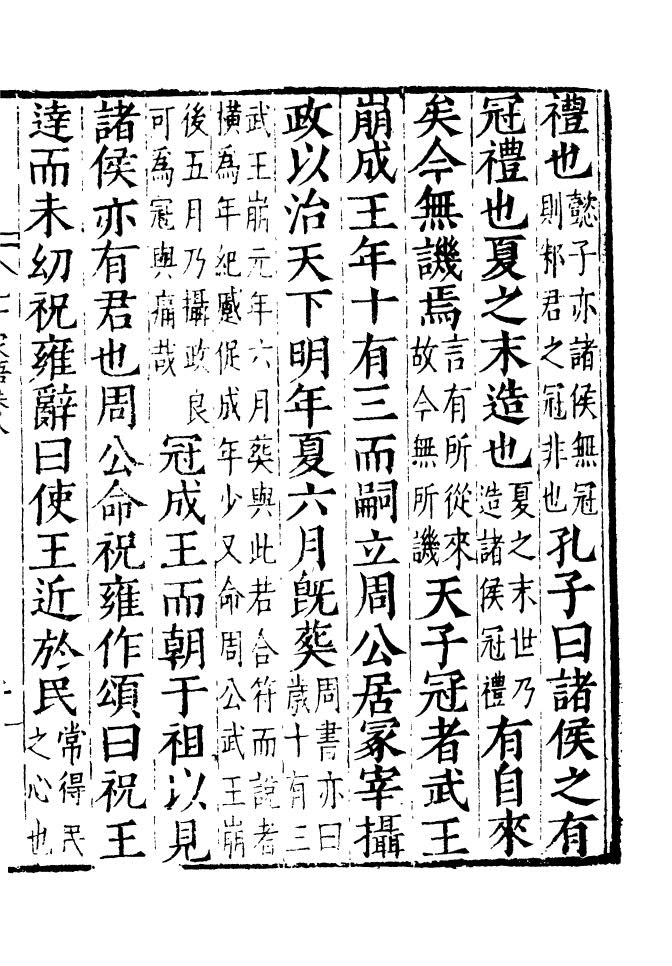 禮也懿子亦諸侯無冠則邾君之冠非也孔子曰諸侯之有
冠禮也夏之末造也夏之末世乃造諸侯冠禮有自來
矣今無譏焉言有所從來故今無所譏天子冠者武王
崩成王年十有三而嗣立周公居冢宰攝
政以治天下明年夏六月旣葬周書亦曰歲十有三
武王崩元年六月葬與此若合符而說者橫為年紀蹙促成年少又命周公武王崩
後五月乃攝政良可為冠與痛哉冠成王而朝于祖以見
諸侯亦有君也周公命祝雍作頌曰祝王
達而未幼祝雍辭曰使王近於民常得民之心也